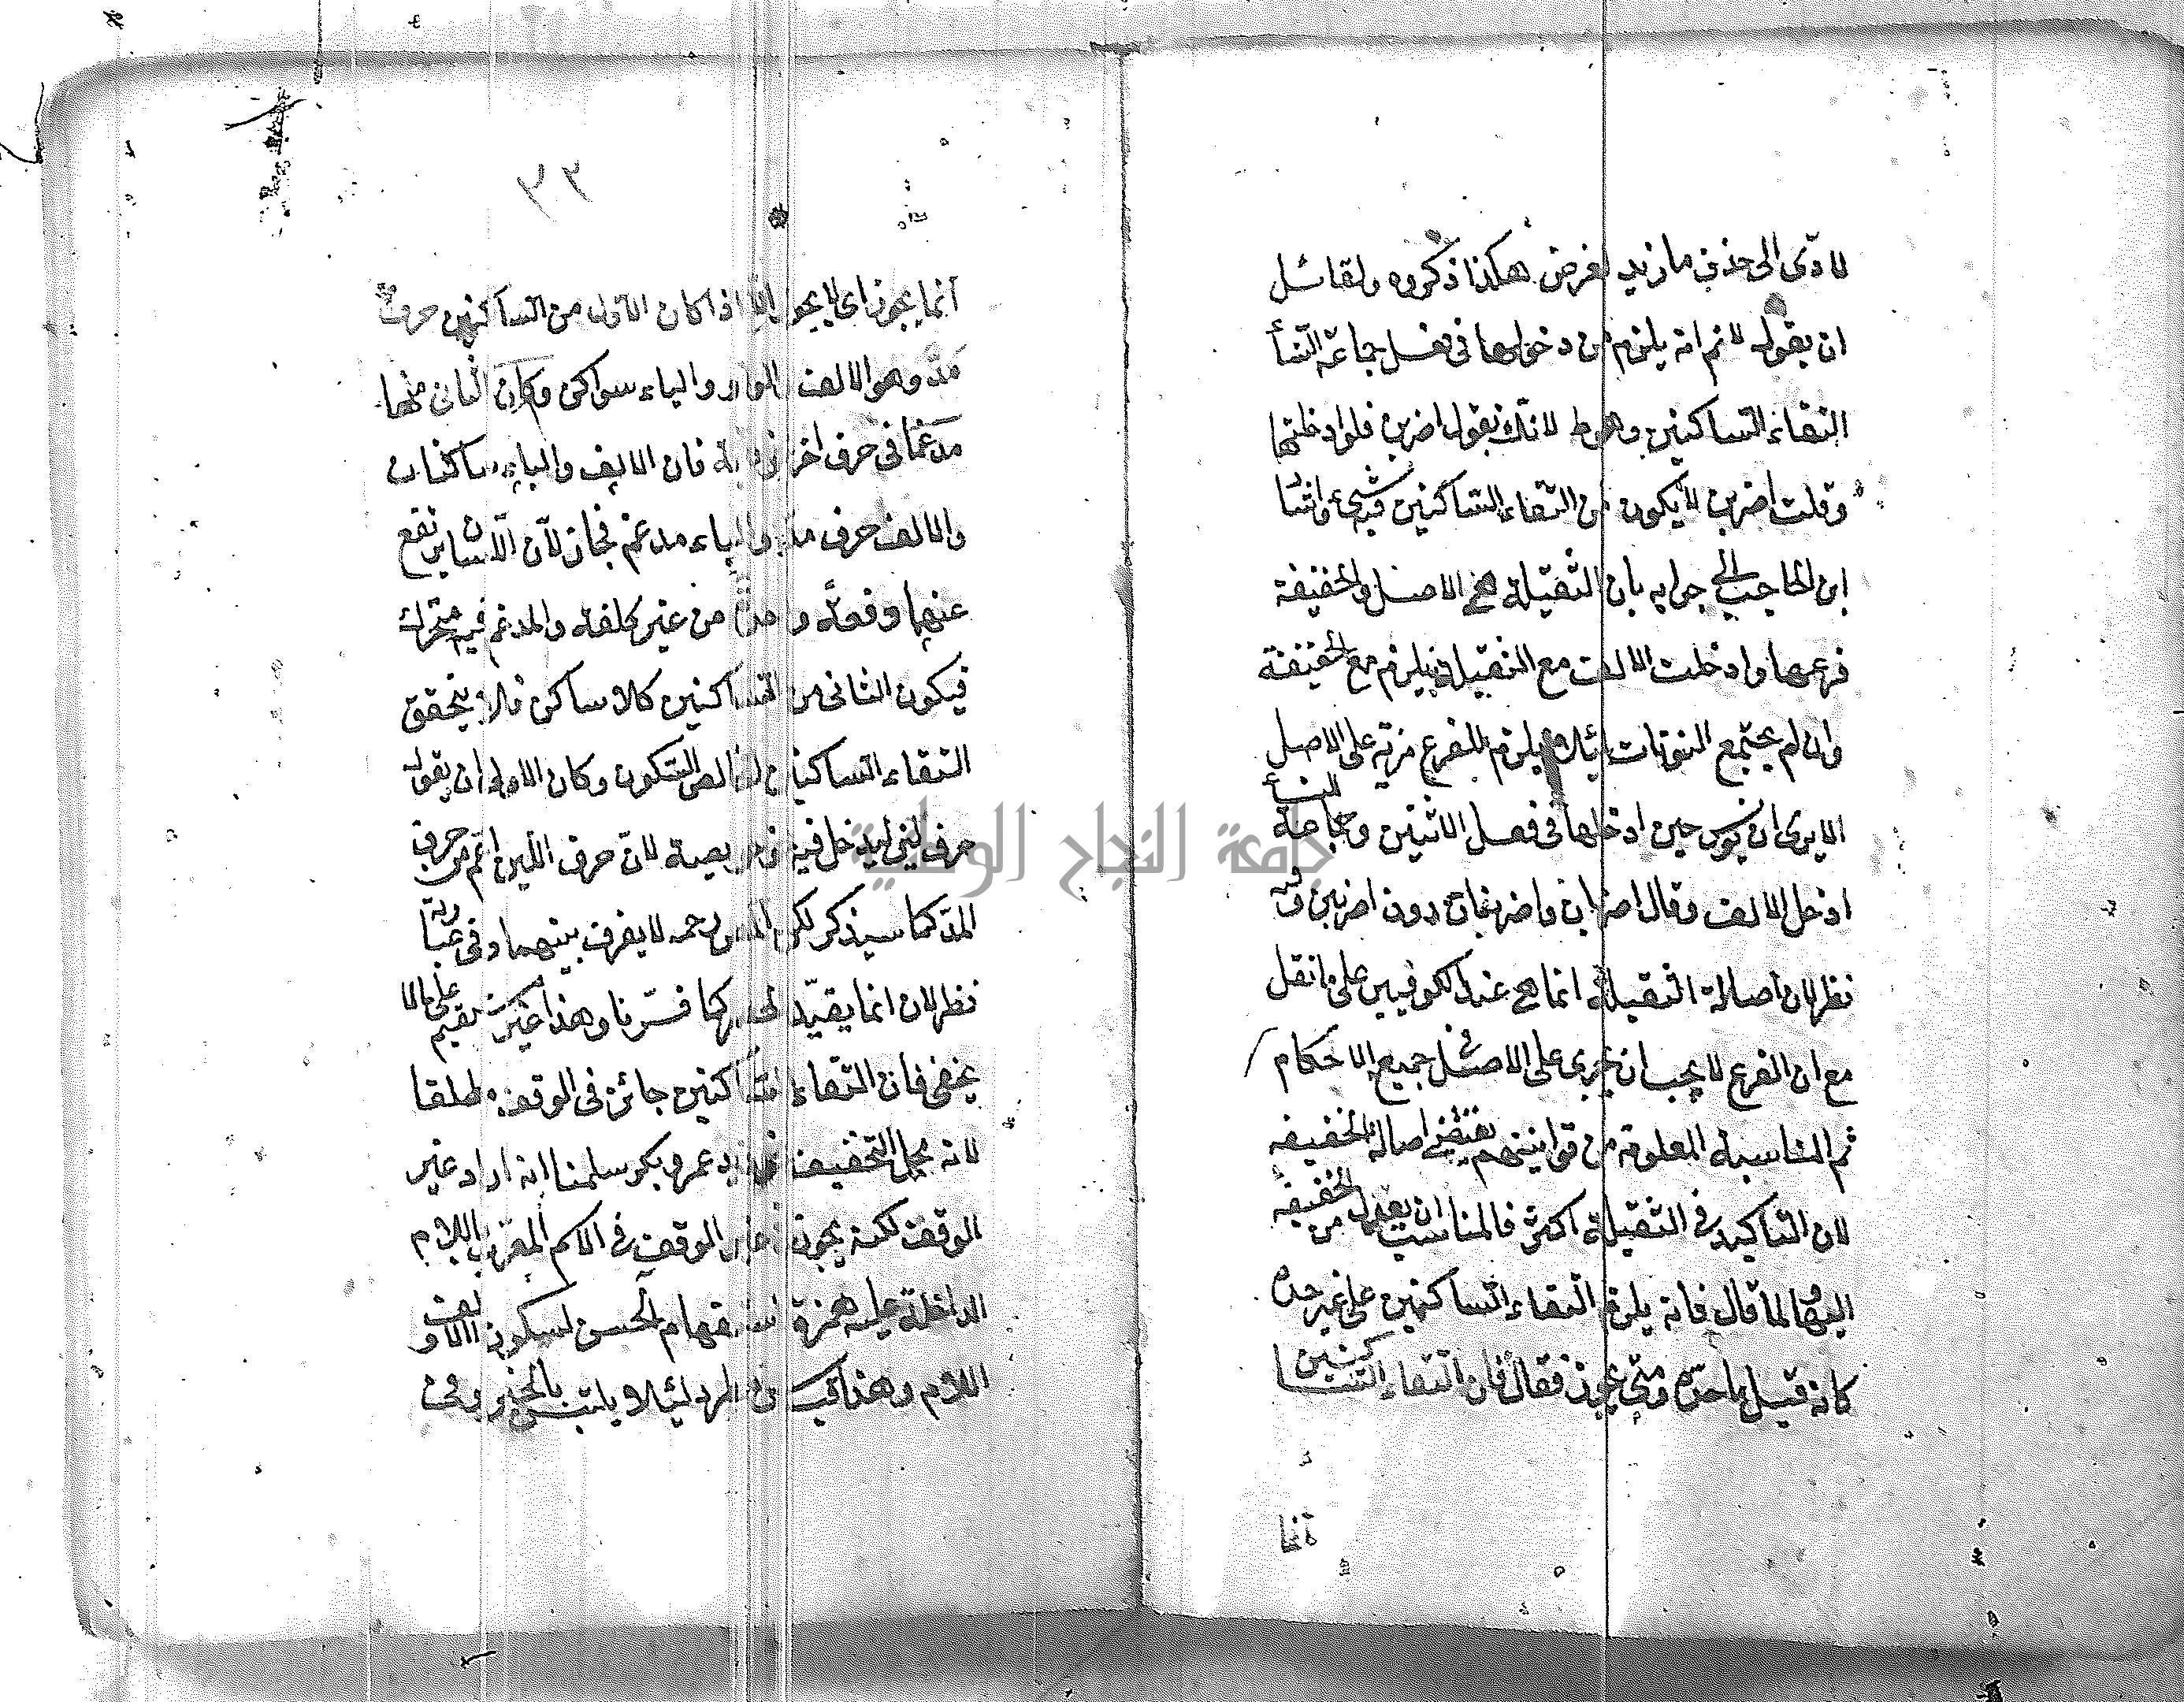 لادّى الى حذف ما زيد لغرض هكذا ذكروه ولقائل
ان يقول لا نم انه يلزم من دخولها فى فعل جماعة النسأ
التقاء الساكنين وهو ط لانك تقول اضربن فلو ادخلتها
وقلت اضربن لا يكون من التقاء الساكنين فى شىء واشا
ابن الحاجب الى جوابه بان الثقيلة هى الاصل والخفيفة
فرعها وادخلت الالف مع الثقيلة فيلزم مع الخفيفة
وان لم يجتمع النونات لئلا يلزم للفرع مزية على الاصل
الا يرى ان يونس حين ادخلها فى فعل الاثنين وجماعة النسأ
ادخل الالف وقال اضربان واضربنان دون اضربن وفيه
نظر لان اصالة الثقيلة انما هى عند الكوفيين على ما نقل
مع ان الفرع لا يجب ان يجرى على الاصل جميع الاحكام
ثم المناسبة المعلومة من قوانينهم يقتضى اصالة الخفيفة
لان التاكيد فى الثقيلة اكثر فالمناسب ان يعدل من الخفيفة
اليها لما قال فانه يلزم التقاء الساكنين على غير حده
كانه قيل ما حده ومتى يجوز فقال فان التقاء الساكنين
انما
٣٢
انما يجوز اى لا يجوز الا اذا كان الاول من الساكنين حرف
مدّ وهو الالف والواو والياء سواكن وكان الثانى منهما
مدغما فى حرف اخر فان الالف والياء ساكنان
والالف حرف مدّ والياء مدغم فجاز لأن اللسان يرتفع
عنهما دفعة واحدة من غير كلفة والمدغم فيه متحرك
فيكون الثانى من الساكنين كلا ساكن فلا يتحقق
التقاء الساكنين الخالص السكون وكان الاولى ان يقول
حرف لين ليدخل فيه نحو خويصة لان حرف اللين اعم من حرف
المدّ كما سيذكر لكن المص رحمه لا يفرق بينهما وفى عبارته
نظر لان انما يفيد الحصر كما فسّرنا وهذا غير مستقيم على ما لا
يخفى فان التقاء الساكنين جائز فى الوقف مطلقا
لانه محل التخفيف نحو زيد عمرو بكر سلمنا انه اراد غير
الوقف لكنه يجوز فى غير الوقف فى الاسم المعرف باللام
الداخلة عليه همزة الاستفهام نحو الحسن لسكون الالف و
اللام وهذا قياس مطرد لئلا يلتبس بالخبر وفى